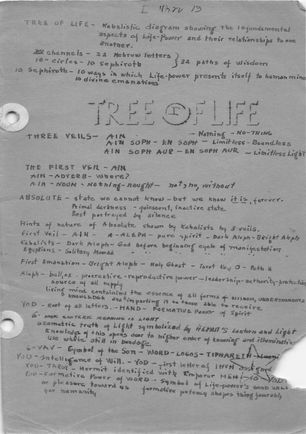 I
TREE OF LIFE - Kabalistic diagram showing the fundamental
aspects of Life-power and their relationships to one
another.
channels - 22 Hebrew letters
10 - circles - 10 Sephiroth
32 paths of wisdom
10 Sephiroth - 10 ways in which Life-power presents itself to human mind
10 divine emanations
TREE OF LIFE
THREE VEILS - AIN - Nothing - NO-THING
AIN SOPH - EN SOPH - Limitless - Boundless
AIN SOPH AUR - EN SOPH AUR - Limitless Light
THE FIRST VEIL - AIN
AIN - ADVERB - Where?
AIN - NOUN - Nothing - nought - not, no, without
ABSOLUTE - state we cannot know - but we know it is, forever.
Primal darkness - quiescent, inactive state
Best portrayed by silence
Hints of nature of Absolute shown by Kabalists by 3 veils.
First Veil - AIN - A - ALEPH - pure spirit - Dark Aleph - Bright Aleph
Kabalists - Dark Aleph - God before beginning cycle of manifestation
Egyptians - Solitary
First Emanation - Bright Aleph - Holy Ghost - Tarot Key 0
Aleph - bull, ox - procreative - reproductive power - leadership - authority - protection
source of all supply
Living mind containing the essence of all forms of wisdom, understanding,
knowledge and imparting it to those able to receive
YOD - root of all letters - HAND - FORMATIVE POWER of Spirit
geometric truth of Light symbolized by HERMIT'S lantern and Light
Knowledge of this opens door to higher order of knowing and illumination
while still in bondage
6 - VAV - Symbol of the Son - WORD - LOGOS - TIPHARETH
YOD - Intelligence of Will - YOD - first letter of IHVH
YOD - TAROT - Hermit identified with Emperor
YOD - Formative Power of WORD - Symbol of Life-power's
or pleasure toward us formative potency shapes things favorably
for humanity